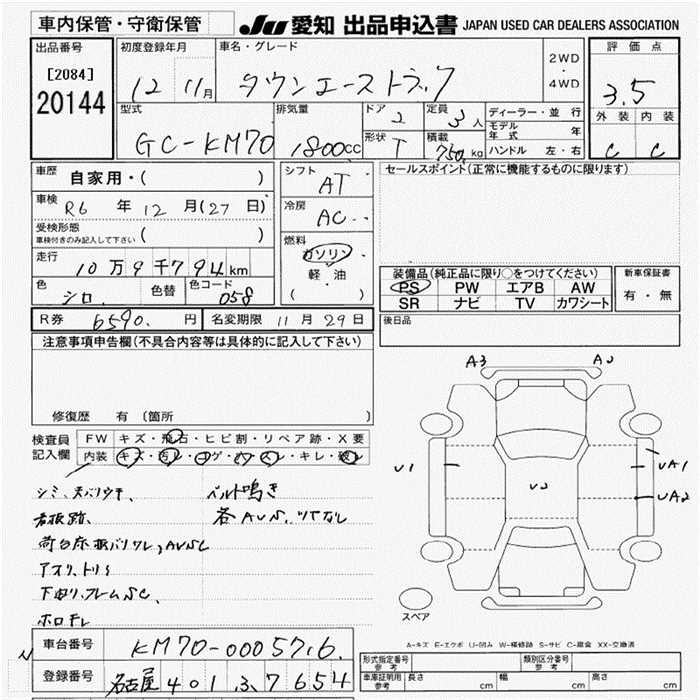 車内保管・守衛保管
JU 愛知 出品申込書 JAPAN USED CAR DEALERS ASSOCIATION
出品番号
[2084]
20144
初度登録年月
12 11月
車名・グレード
タウンエーストラック
2WD
・
4WD
評価点
3.5
外装 内装
C C
型式
GC-KM70
排気量
1800cc
ドア
2
定員
3人
形状
T
積載
750kg
ディーラー・並行
モデル年式 年
ハンドル 左・右
車歴
自家用・( )
車検
R6 年 12 月(27 日)
受検形態
車検付きのみ記入して下さい ( )
走行
10万9千794km
色
シロ
色替
色コード
058
シフト
AT
冷房
AC
燃料
ガソリン
軽油
( )
セールスポイント(正常に機能するものに限ります)
装備品(純正品に限り○をつけてください)
PS PW エアB AW
SR ナビ TV カワシート
新車保証書
有・無
R券 6590. 円
名変期限 11月29日
後日品
注意事項申告欄(不具合内容等は具体的に記入して下さい)
修復歴 有 〔箇所 〕
検査員記入欄
FW キズ・飛石・ヒビ割・リペア跡・X要
内装 キズ・汚レ・コゲ・ハズレ・キレ・破レ
シミ、天バリウキ、
ベルト鳴き
看板跡、
各AUS、ツヤなし
アオリ、トリミ
下回り、フレームSC、
ホロナレ
A3
A2
U1
U2
UA1
UA2
スペア
A=キズ E=エクボ U=凹み W=補修跡 S=サビ C=腐食 XX=交換済
車台番号 KM70-0005716
登録番号 名古屋 401 そ 7654
形式指定番号 参考
類別区分番号 参考
車庫証明用 参考 長さ cm 幅 cm 高さ cm